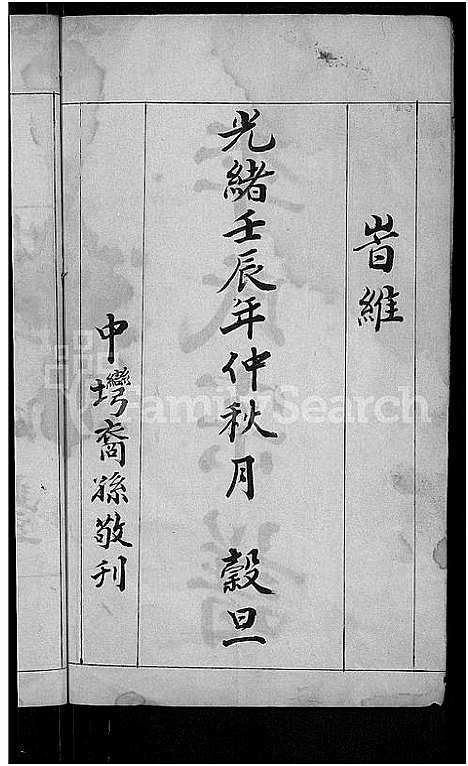 旹維
光緒壬辰年仲秋月 穀旦
中塆裔孫敬刊
FamilySearch